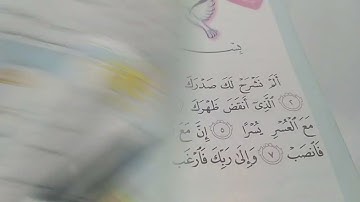 أَلَمْ نَشْرَحْ لَكَ صَدْرَكَ
٢ ٱلَّذِىٓ أَنقَضَ ظَهْرَكَ
مَعَ ٱلْعُسْرِ يُسْرًا ٥ إِنَّ مَعَ
فَٱنصَبْ ٧ وَإِلَىٰ رَبِّكَ فَٱرْغَب